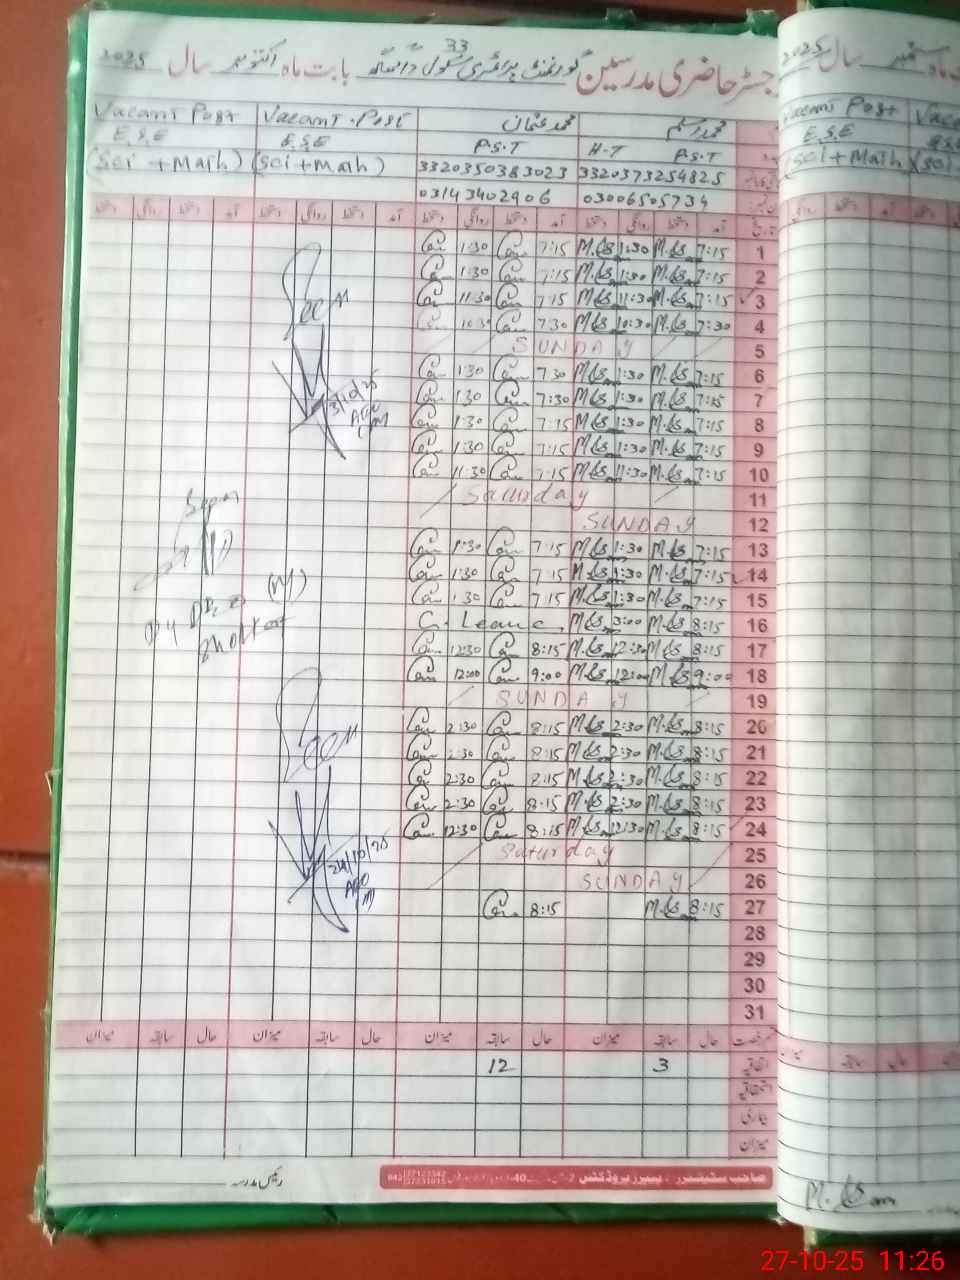 رجسٹر حاضری مدرسین گورنمنٹ پرائمری سکول بابت ماہ اکتوبر سال 2025
محمد اسلم محمد عثمان Vacant Post Vacant Post
H.T P.S.T P.S.T E.S.E E.S.E
(Sci + Math) (Sci + Math)
3320373254825 3320350383023
03006505734 03143402906
آمد دستخط روانگی دستخط آمد دستخط روانگی دستخط آمد دستخط روانگی دستخط آمد دستخط روانگی دستخط
1 7:15 M.S 1:30 M.S 7:15 1:30
2 7:15 M.S 1:30 M.S 7:15 1:30
3 7:15 M.S 11:30 M.S 7:15 11:30
4 7:30 M.S 10:30 M.S 7:30 10:30
5 SUNDAY
6 7:15 M.S 1:30 M.S 7:30 1:30
7 7:15 M.S 1:30 M.S 7:30 1:30
8 7:15 M.S 1:30 M.S 7:15 1:30
9 7:15 M.S 1:30 M.S 7:15 1:30
10 7:15 M.S 11:30 M.S 7:15 11:30
11 Saturday
12 SUNDAY
13 7:15 M.S 1:30 M.S 7:15 1:30
14 7:15 M.S 1:30 M.S 7:15 1:30
15 7:15 M.S 1:30 M.S 7:15 1:30
16 8:15 M.S 3:00 M.S C. Leave
17 8:15 M.S 12:30 M.S 8:15 12:30
18 9:00 M.S 12:00 M.S 9:00 12:00
19 SUNDAY
20 8:15 M.S 2:30 M.S 8:15 2:30
21 8:15 M.S 2:30 M.S 8:15 2:30
22 8:15 M.S 2:30 M.S 8:15 2:30
23 8:15 M.S 2:30 M.S 8:15 2:30
24 8:15 M.S 12:30 M.S 8:15 12:30
25 Saturday
26 SUNDAY
27 8:15 M.S 8:15
28
29
30
31
Seen
3/10/25
AEO
(M)
Seen
Dy DEO (M)
Seen
24/10/25
AEO
(M)
رخصت حال سابقہ میزان حال سابقہ میزان حال سابقہ میزان حال سابقہ میزان
اتفاقیہ 3 12
استحقاقیہ
بیماری
میزان
رئیس مدرسہ
سال 2025
Vacant Post
E.S.E
(Sci + Math)
27-10-25 11:26